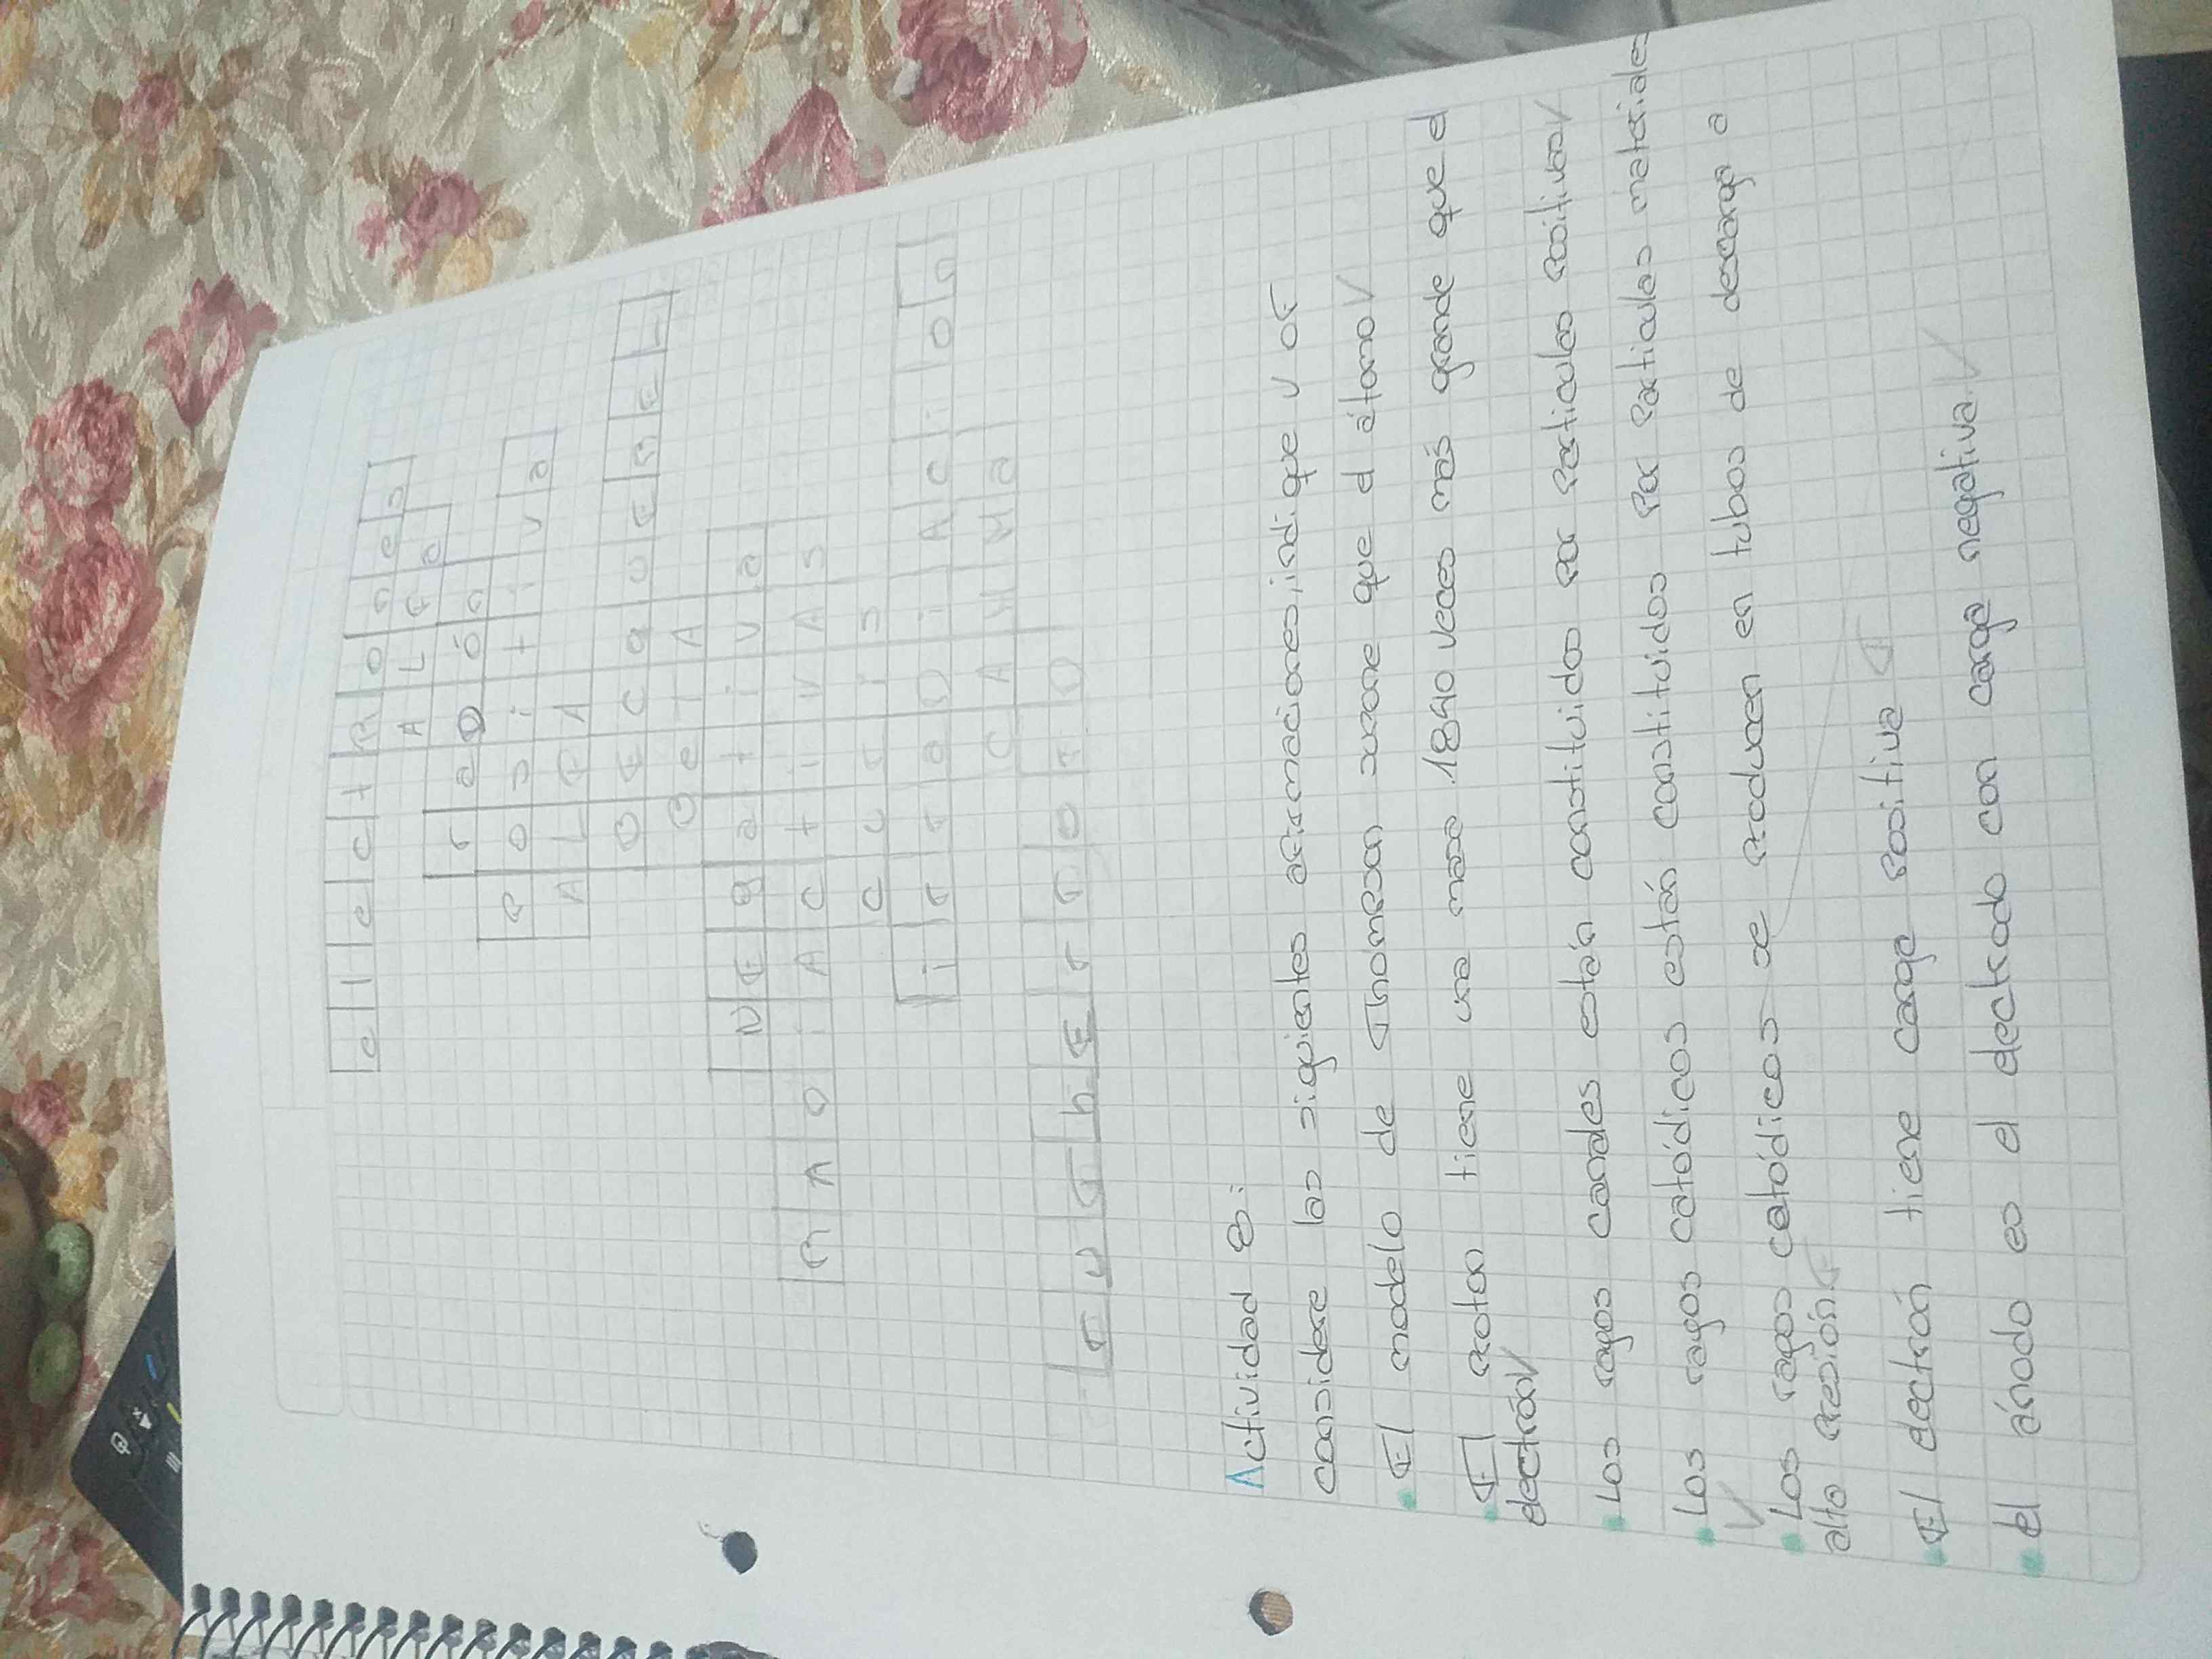 electRones
ALFa
raDón
positiva
ALFA
BECquEREL
BetA
NEgativa
RAdiACtivAS
curis
irraDiAción
GAMMa
ruthErFOrD
Actividad 8:
considere las siguientes afirmaciones, indique V o F
• El modelo de Thompson supone que el átomo V
• El proton tiene una masa 1840 veces más grande que el
electrón V
• Los rayos canales están constituidos por particulas positivas V
• Los rayos catódicos están constituidos por particulas materiales
V
• Los rayos catódicos se producen en tubos de descarga a
alta presión. F
• El electrón tiene carga positiva F
• el ánodo es el electrodo con carga negativa. V